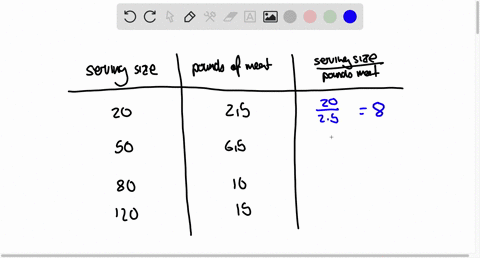 serving size pounds of meat serving size / pounds meat
20 2.5 20 / 2.5 = 8
50 6.5
80 10
120 15